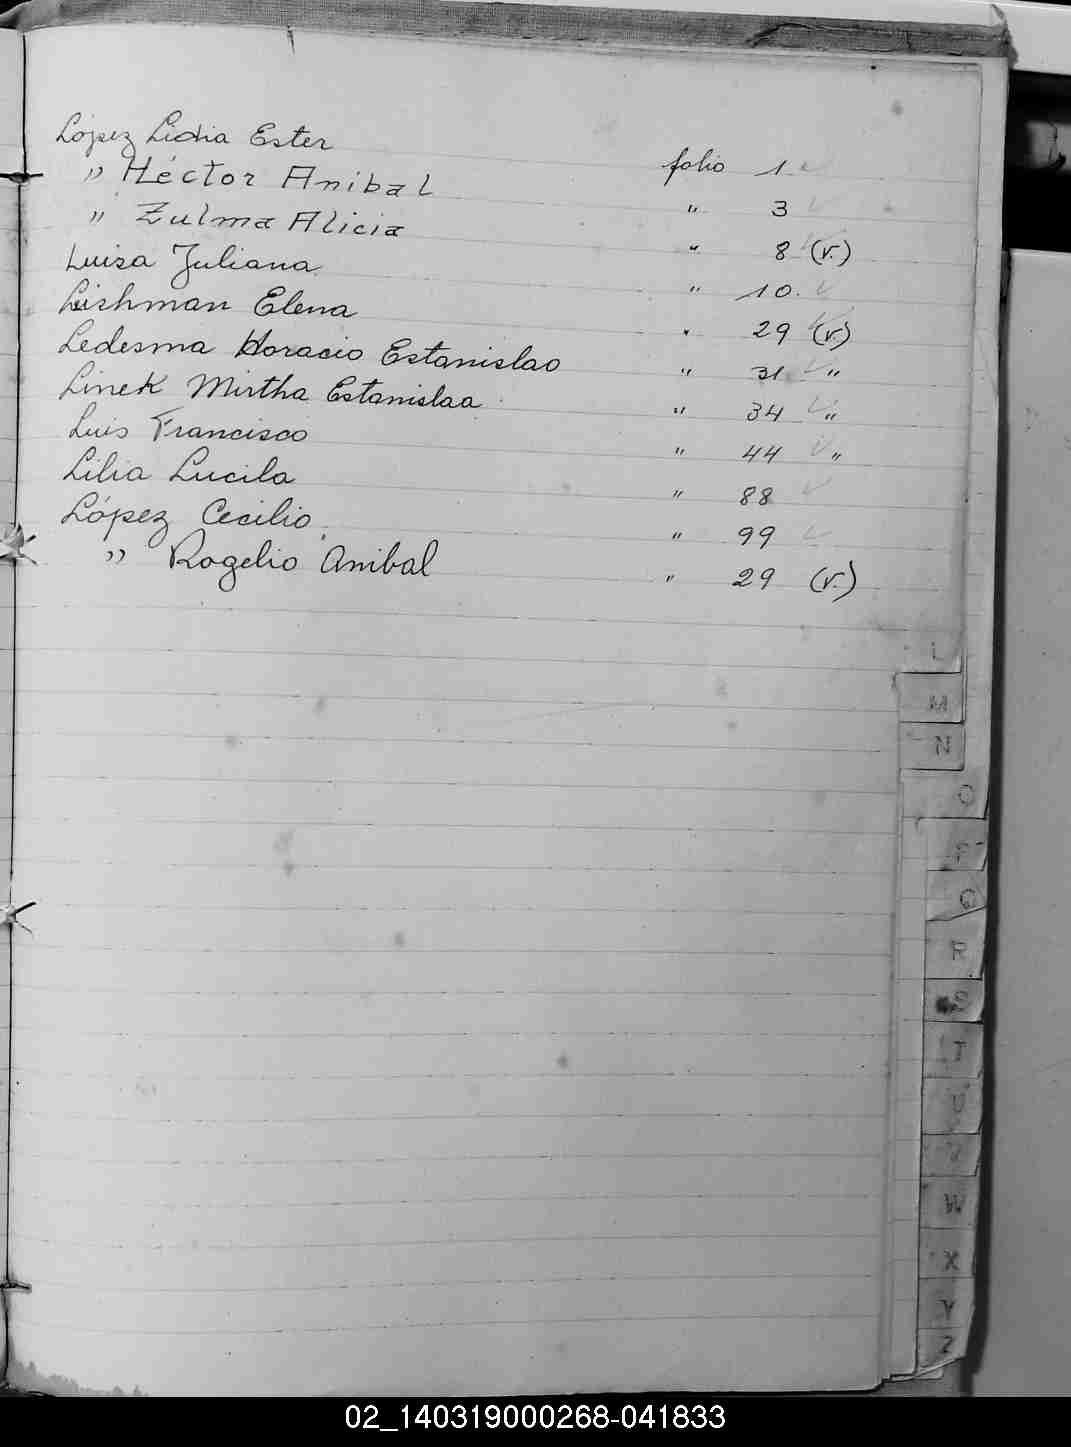 López Lidia Ester folio 1
" Héctor Anibal " 3
" Zulma Alicia " 8 (v.)
Luisa Juliana " 10.
Leishman Elena " 29 (v.)
Ledesma Horacio Estanislao " 31 "
Linek Mirtha Estanislaa " 34 "
Luis Francisco " 44 "
Lilia Lucila " 88
López Cecilio " 99
" Rogelio Anibal " 29 (v.)
L
M
N
O
P
Q
R
S
T
U
V
W
X
Y
Z
02_140319000268-041833